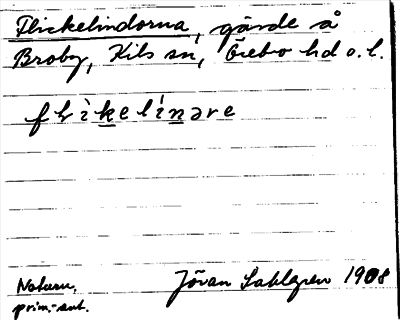 Flickelindorna, gärde å
Broby, Kils sn, Örebro hd o. l.
flìkelínəre
Naturn,
prim.-ant.
Jöran Sahlgren 1908